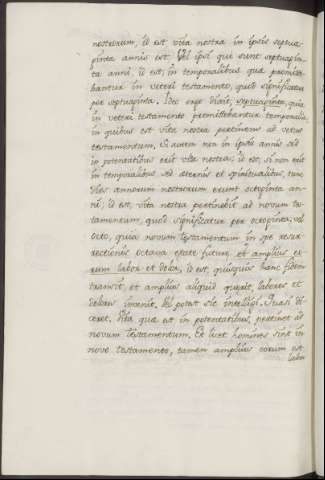 nostrorum, id est vita nostra in ipsis septua-
ginta annis est. Vel ipsi qui sunt septuagin-
ta anni, id est, in temporalibus quæ promitte-
bantur in veteri testamento, quod significatur
per septuaginta. Ideo ergo dixit, septuaginta, quia
in veteri testamento promittebantur temporalia
in quibus est vita nostra pertinens ad vetus
testamentum, Si autem non in ipsis annis sed
in potentatibus erit vita nostra; id est, si non erit
in temporalibus sed æternis et spiritualibus, tunc
dies annorum nostrorum erunt octoginta an-
ni, id est, vita nostra pertinebit ad novum te-
stamentum, quod significatur per octoginta, vel
octo, quia novum testamentum in spe resur-
rectionis octavæ ætate futuræ, et amplius eo-
rum labor et dolor, id est, quisquis hanc fidem
transit, et amplius aliquid quærit, labores et
dolores invenit. Vel potest sic intelligi. Quasi di-
ceret. Vita quæ est in potentatibus, pertinet ad
novum testamentum, Et licet homines sint in
novo testamento, tamen amplius eorum est
labor